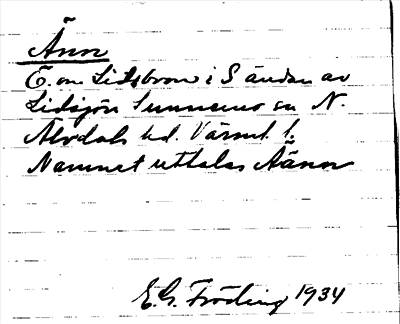 Änn
Ö. om Lidsbron i S ändan av
Lidsjön Sunnemo sn N.
Älvdals hd. Värml. l.
Namnet uttalas Äänn
E.G. Fröding 1934